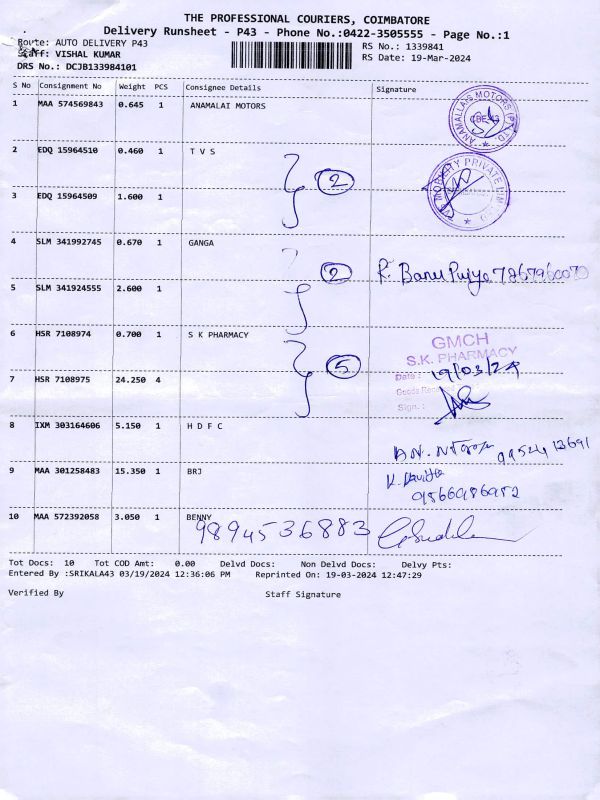 THE PROFESSIONAL COURIERS, COIMBATORE
Delivery Runsheet - P43 - Phone No.:0422-3505555 - Page No.:1
Route: AUTO DELIVERY P43
RS No.: 1339841
Staff: VISHAL KUMAR
RS Date: 19-Mar-2024
DRS No.: DCJB133984101
S No Consignment No Weight PCS Consignee Details Signature
1 MAA 574569843 0.645 1 ANAMALAI MOTORS
ANAMALLAIS MOTORS (P) LTD
CBE-43
2 EDQ 15964510 0.460 1 T V S
2
MOBILITY PRIVATE LIMITED
3 EDQ 15964509 1.600 1
4 SLM 341992745 0.670 1 GANGA
2
R. Banu Puiya
5 SLM 341924555 2.600 1
6 HSR 7108974 0.700 1 S K PHARMACY
5
GMCH
S.K. PHARMACY
Date : 19/03/24
Goods Received
Sign. :
7 HSR 7108975 24.250 4
8 IXM 303164606 5.150 1 H D F C
9 MAA 301258483 15.350 1 BRJ
10 MAA 572392058 3.050 1 BENNY
9894536883
Tot Docs: 10 Tot COD Amt: 0.00 Delvd Docs: Non Delvd Docs: Delvy Pts:
Entered By :SRIKALA43 03/19/2024 12:36:06 PM Reprinted On: 19-03-2024 12:47:29
Verified By Staff Signature